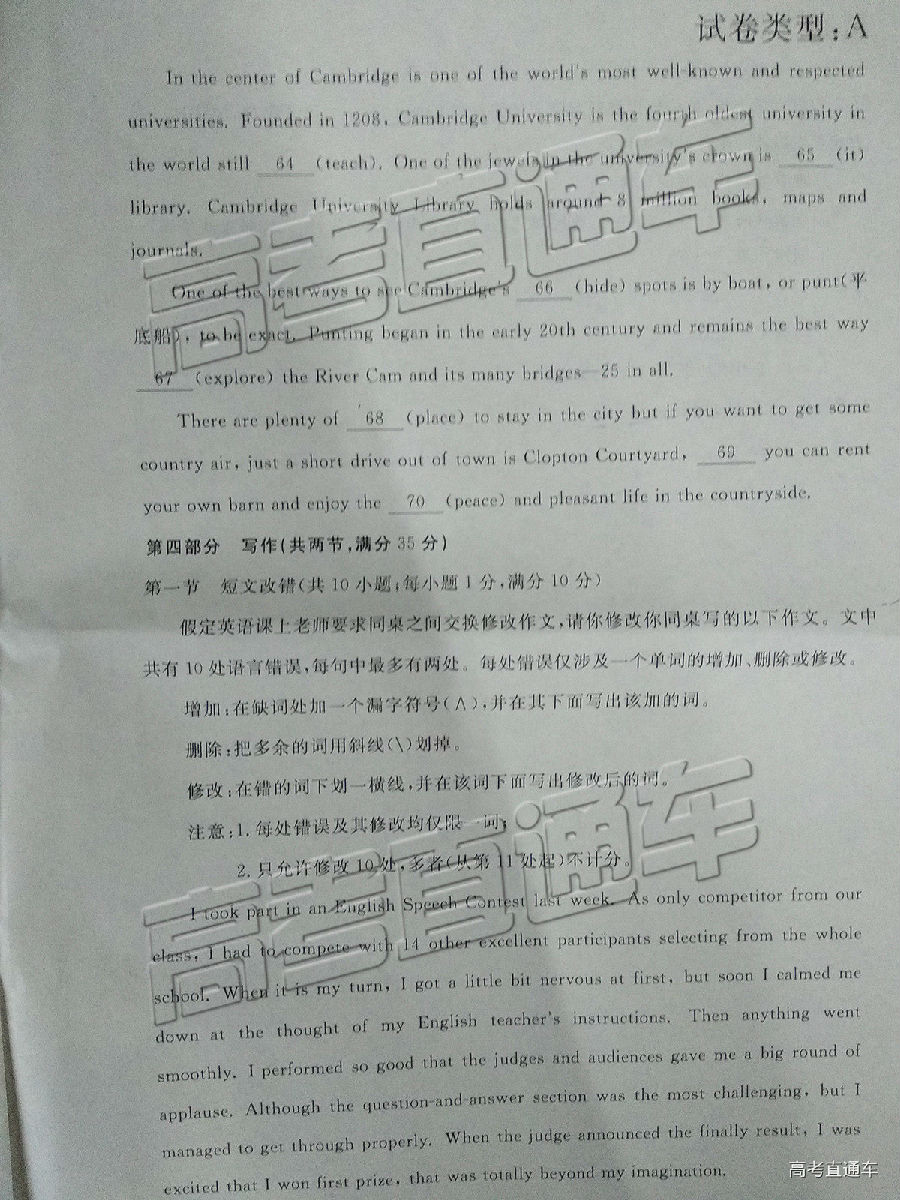 试卷类型:A
In the center of Cambridge is one of the world's most well-known and respected
universities. Founded in 1208, Cambridge University is the fourth oldest university in
the world still 64 (teach). One of the jewels in the university's crown is 65 (it)
library. Cambridge University Library holds around 8 million books, maps and
journals.
One of the best ways to see Cambridge's 66 (hide) spots is by boat, or punt(平
底船), to be exact. Punting began in the early 20th century and remains the best way
67 (explore) the River Cam and its many bridges—25 in all.
There are plenty of 68 (place) to stay in the city but if you want to get some
country air, just a short drive out of town is Clopton Courtyard, 69 you can rent
your own barn and enjoy the 70 (peace) and pleasant life in the countryside.
第四部分 写作(共两节,满分35分)
第一节 短文改错(共10小题;每小题1分,满分10分)
假定英语课上老师要求同桌之间交换修改作文,请你修改你同桌写的以下作文。文中
共有10处语言错误,每句中最多有两处。每处错误仅涉及一个单词的增加、删除或修改。
增加:在缺词处加一个漏字符号(∧),并在其下面写出该加的词。
删除:把多余的词用斜线(\)划掉。
修改:在错的词下划一横线,并在该词下面写出修改后的词。
注意:1.每处错误及其修改均仅限一词;
2.只允许修改10处,多者(从第11处起)不计分。
I took part in an English Speech Contest last week. As only competitor from our
class, I had to compete with 14 other excellent participants selecting from the whole
school. When it is my turn, I got a little bit nervous at first, but soon I calmed me
down at the thought of my English teacher's instructions. Then anything went
smoothly. I performed so good that the judges and audiences gave me a big round of
applause. Although the question-and-answer section was the most challenging, but I
managed to get through properly. When the judge announced the finally result, I was
excited that I won first prize, that was totally beyond my imagination.
高考直通车
高考直通车
高考直通车